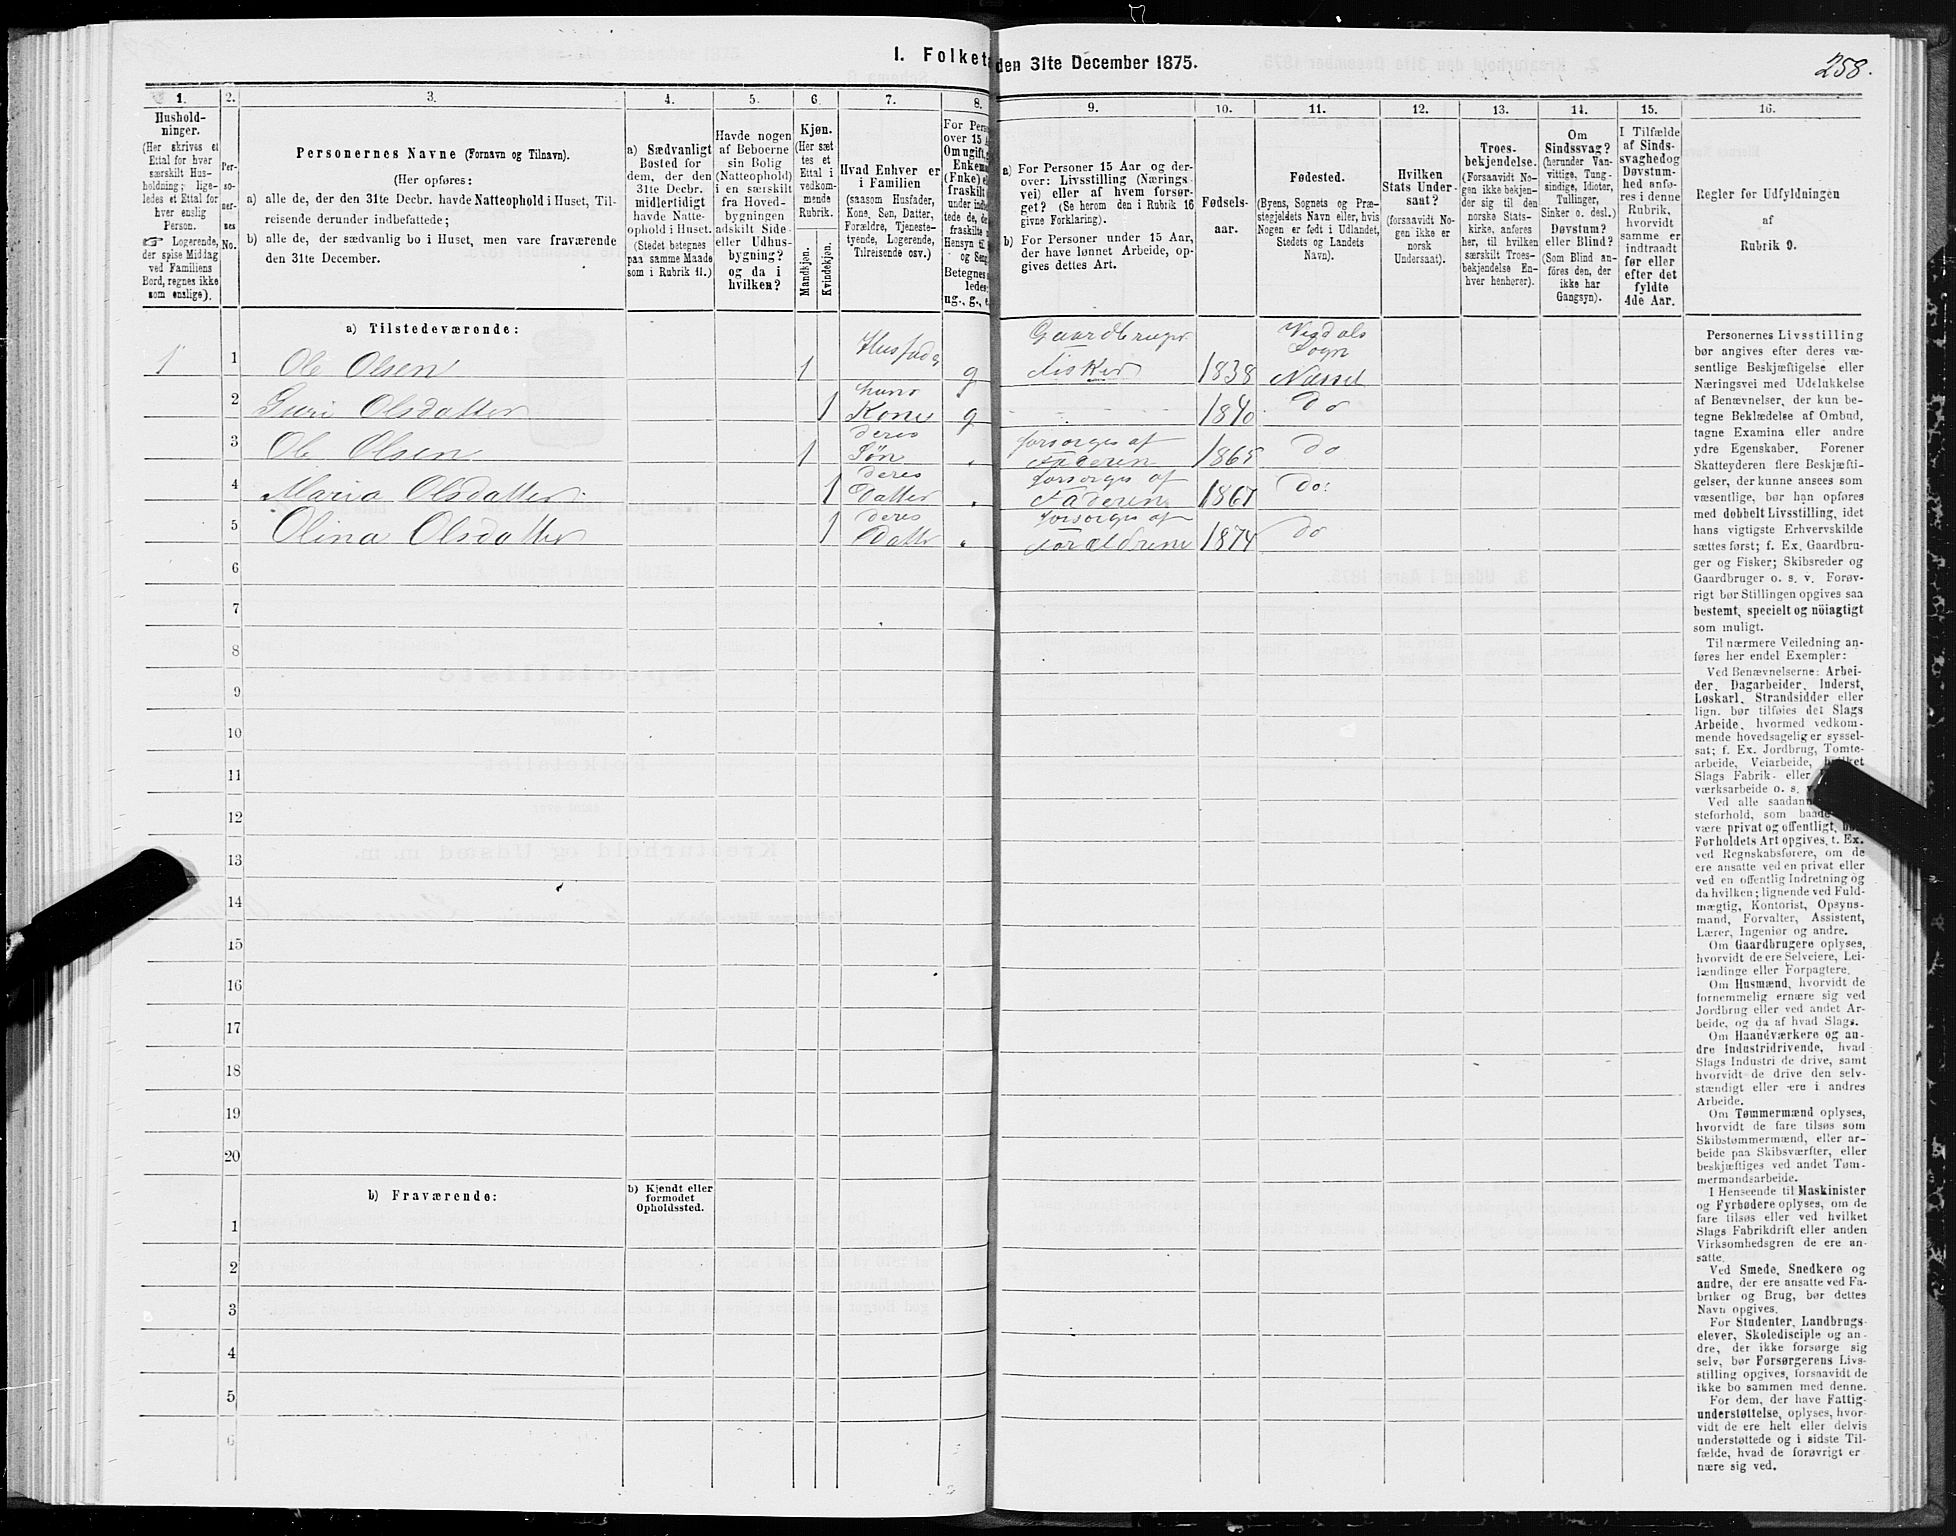 I. Folketæ
den 31te December 1875.
258.
1. 2. 3. 4. 5. 6. 7. 8. 9. 10. 11. 12. 13. 14. 15. 16.
Hushold-
ninger.
(Her skrives et
Ettal for hver
særskilt Hus-
holdning; lige-
ledes et Ettal for
hver enslig
Person.
☞ Logerende,
der spise Middag
ved Familiens
Bord, regnes ikke
som enslige).
Per-
so-
ner-
nes
No.
Personernes Navne (Fornavn og Tilnavn).
(Her opføres:
a) alle de, der den 31te Decbr. havde Natteophold i Huset, Til-
reisende derunder indbefattede;
b) alle de, der sædvanlig bo i Huset, men vare fraværende
den 31te December.
a) Sædvanligt
Bosted for
dem, der den
31te Decbr.
midlertidigt
havde Natte-
ophold i Huset.
(Stedet betegnes
paa samme Maade
som i Rubrik 11.)
Havde nogen
af Beboerne
sin Bolig
(Natteophold)
i en særskilt
fra Hoved-
bygningen
adskilt Side-
eller Udhus-
bygning?
og da i
hvilken?
Kjøn.
(Her sæt-
tes et
Ettal i
vedkom-
mende
Rubrik.
Mandkjøn.
Kvindekjøn.
Hvad Enhver er
i Familien
(saasom Husfader,
Kone, Søn, Datter,
Forældre, Tjeneste-
tyende, Logerende,
Tilreisende osv.)
For Pers
over 15 A
Om ugift, g
Enkem
(Fnke) e
fraskilt
under indbe
tede de, de
fraskilte
Hensyn til
og Seng
Betegnes
ledes:
ug., g., e.
a) For Personer 15 Aar og der-
over: Livsstilling (Nærings-
vei) eller af hvem forsør-
get? (Se herom den i Rubrik 16
givne Forklaring).
b) For Personer under 15 Aar,
der have lønnet Arbeide, op-
gives dettes Art.
Fødsels-
aar.
Fødested.
(Byens, Sognets og Præ-
stegjeldets Navn eller, hvis
Nogen er født i Udlandet,
Stedets og Landets
Navn).
Hvilken
Stats Under-
saat?
(forsaavidt No-
gen ikke er
norsk
Undersaat).
Troes-
bekjendelse.
(Forsaavidt No-
gen ikke bekjen-
der sig til den
norske Stats-
kirke, anføres
her, til hvilken
særskilt Troes-
bekjendelse En-
hver henhører).
Om
Sindssvag?
(herunder Van-
vittige, Tung-
sindige, Idioter,
Tullinger,
Sinker o. desl.)
Døvstum?
eller Blind?
(Som Blind an-
føres den, der
ikke har
Gangsyn).
I Tilfælde
af Sinds-
svaghed og
Døvstum-
hed anfø-
res i denne
Rubrik,
hvorvidt
samme er
indtraadt
før eller
efter det
fyldte
4de Aar.
Regler for Udfyldningen
af
Rubrik 9.
a) Tilstedeværende:
1 1 Ole Olsen 1 Husfader g Gaardbruger Fisker 1838 Nesset
2 Guri Olsdatter 1 hans Kone g 1840 do
3 Ole Olsen 1 deres Søn forsørges af Faderen 1865 do
4 Maria Olsdatter 1 deres Datter forsørges af Faderen 1867 do
5 Olina Olsdatter 1 deres Datter forsørges af Forældrene 1874 do
6
7
8
9
10
11
12
13
14
15
16
17
18
19
20
b) Fraværende:
b) Kjendt eller
formodet
Opholdssted.
1
2
3
4
5
6
Personernes Livsstilling
bør angives efter deres væ-
sentlige Beskjæftigelse eller
Næringsvei med Udelukkelse
af Benævnelser, der kun be-
tegne Beklædelse af Ombud,
tagne Examina eller andre
ydre Egenskaber. Forener
Skatteyderen flere Beskjæfti-
gelser, der kunne ansees som
væsentlige, bør han opføres
med dobbelt Livsstilling, idet
hans vigtigste Erhvervskilde
sættes først; f. Ex. Gaardbru-
ger og Fisker; Skibsreder og
Gaardbruger o. s. v. Forøv-
rigt bør Stillingen opgives saa
bestemt, specielt og nöiagtigt
som muligt.
Til nærmere Veiledning an-
føres her endel Exempler:
Ved Benævnelserne: Arbei-
der, Dagarbeider, Inderst,
Løskarl, Strandsidder eller
lign. bør tilføies det Slags
Arbeide, hvormed vedkom-
mende hovedsagelig er syssel-
sat; f. Ex. Jordbrug, Tomte-
arbeide, Veiarbeide, hvilket
Slags Fabrik- eller
værksarbeide o. s.
Ved alle saadan
steforhold, som baade
være privat og offentligt, bør
Forholdets Art opgives, t. Ex.
ved Regnskabsførere, om de
ere ansatte ved en privat eller
ved en offentlig Indretning og
da hvilken; lignende ved Fuld-
mægtig, Kontorist, Opsyns-
mand, Forvalter, Assistent,
Lærer, Ingeniør og andre.
Om Gaardbrugere oplyses,
hvorvidt de ere Selveiere, Lei-
lændinge eller Forpagtere.
Om Husmænd, hvorvidt de
fornemmelig ernære sig ved
Jordbrug eller ved andet Ar-
beide, og da af hvad Slags.
Om Haandværkere og an-
dre Industridrivende, hvad
Slags Industri de drive, samt
hvorvidt de drive den selv-
stændigt eller ere i andres
Arbeide.
Om Tømmermænd oplyses,
hvorvidt de fare tilsøs som
Skibstømmermænd, eller ar-
beide paa Skibsværfter, eller
beskjæftiges ved andet Tøm-
mermandsarbeide.
I Henseende til Maskinister
og Fyrbødere oplyses, om de
fare tilsøs eller ved hvilket
Slags Fabrikdrift eller anden
Virksomhedsgren de ere an-
satte.
Ved Smede, Snedkere og
andre, der ere ansatte ved Fa-
briker og Brug, bør dettes
Navn opgives.
For Studenter, Landbrugs-
elever, Skoledisciple og an-
dre, der ikke forsørge sig
selv, bør Forsørgerens Livs-
stilling opgives, forsaavidt de
ikke bo sammen med denne.
For dem, der have Fattig-
understøttelse, oplyses, hvor-
vidt de ere helt eller delvis
understøttede og i sidste Til-
fælde, hvad de forøvrigt er-
nære sig ved.